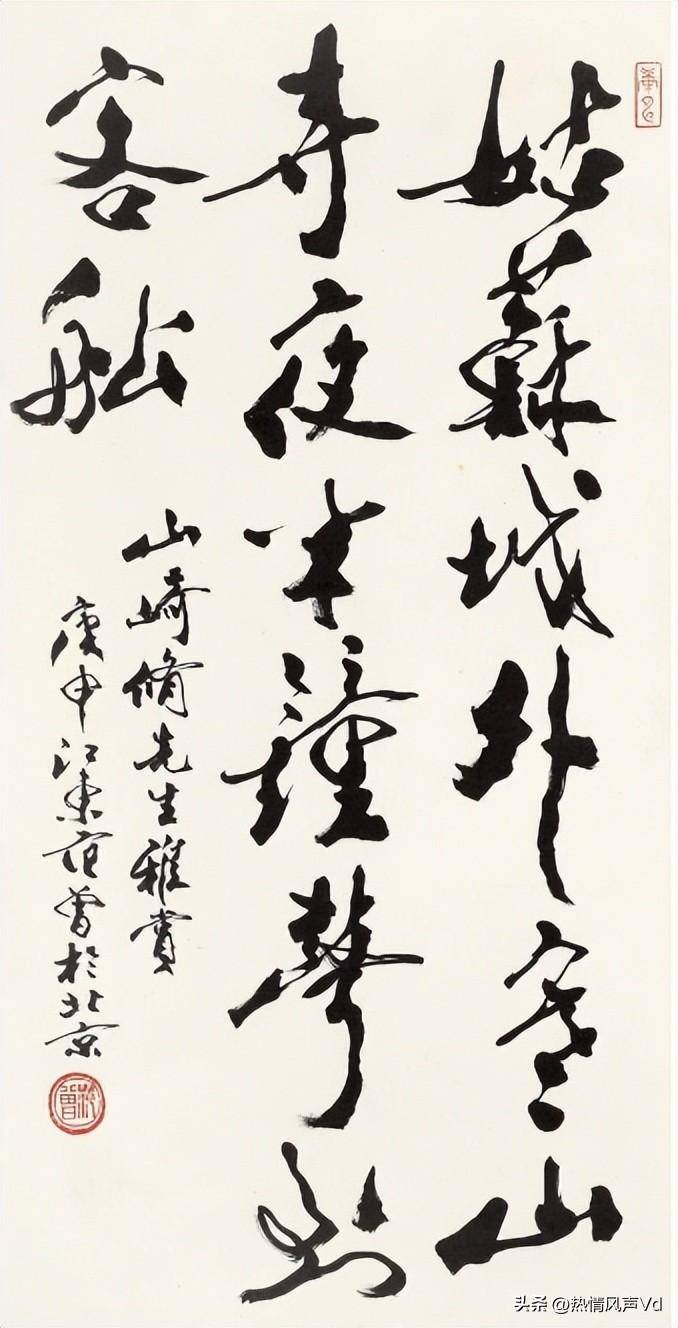 姑蘇城外寒山
寺夜半鐘聲到
客船
山崎脩先生雅賞
庚申江東范曾於北京
范曾
头条 @热情风声Vd